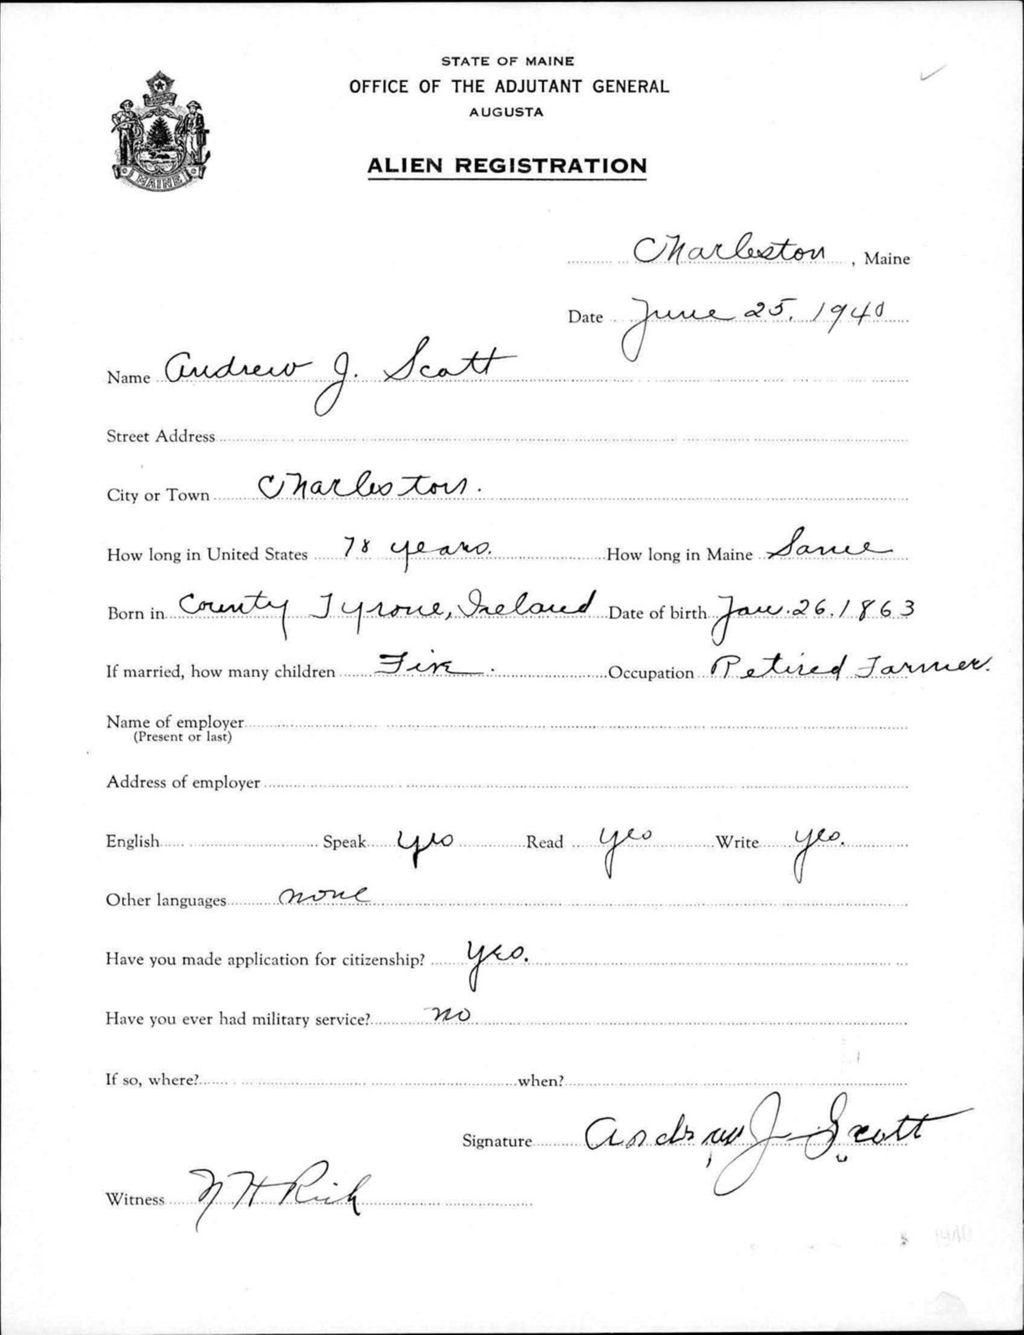 STATE OF MAINE
OFFICE OF THE ADJUTANT GENERAL
AUGUSTA
ALIEN REGISTRATION
MAINE
Charleston, Maine
Date June 25, 1940
Name Andrew J. Scott
Street Address
City or Town Charleston.
How long in United States 78 years. How long in Maine Same
Born in County Tyrone, Ireland Date of birth Jan. 26. 1863
If married, how many children Five. Occupation Retired Farmer.
Name of employer
(Present or last)
Address of employer
English Speak yes Read yes Write yes.
Other languages none
Have you made application for citizenship? yes.
Have you ever had military service? no
If so, where? when?
Signature Andrew J Scott
Witness H Rich